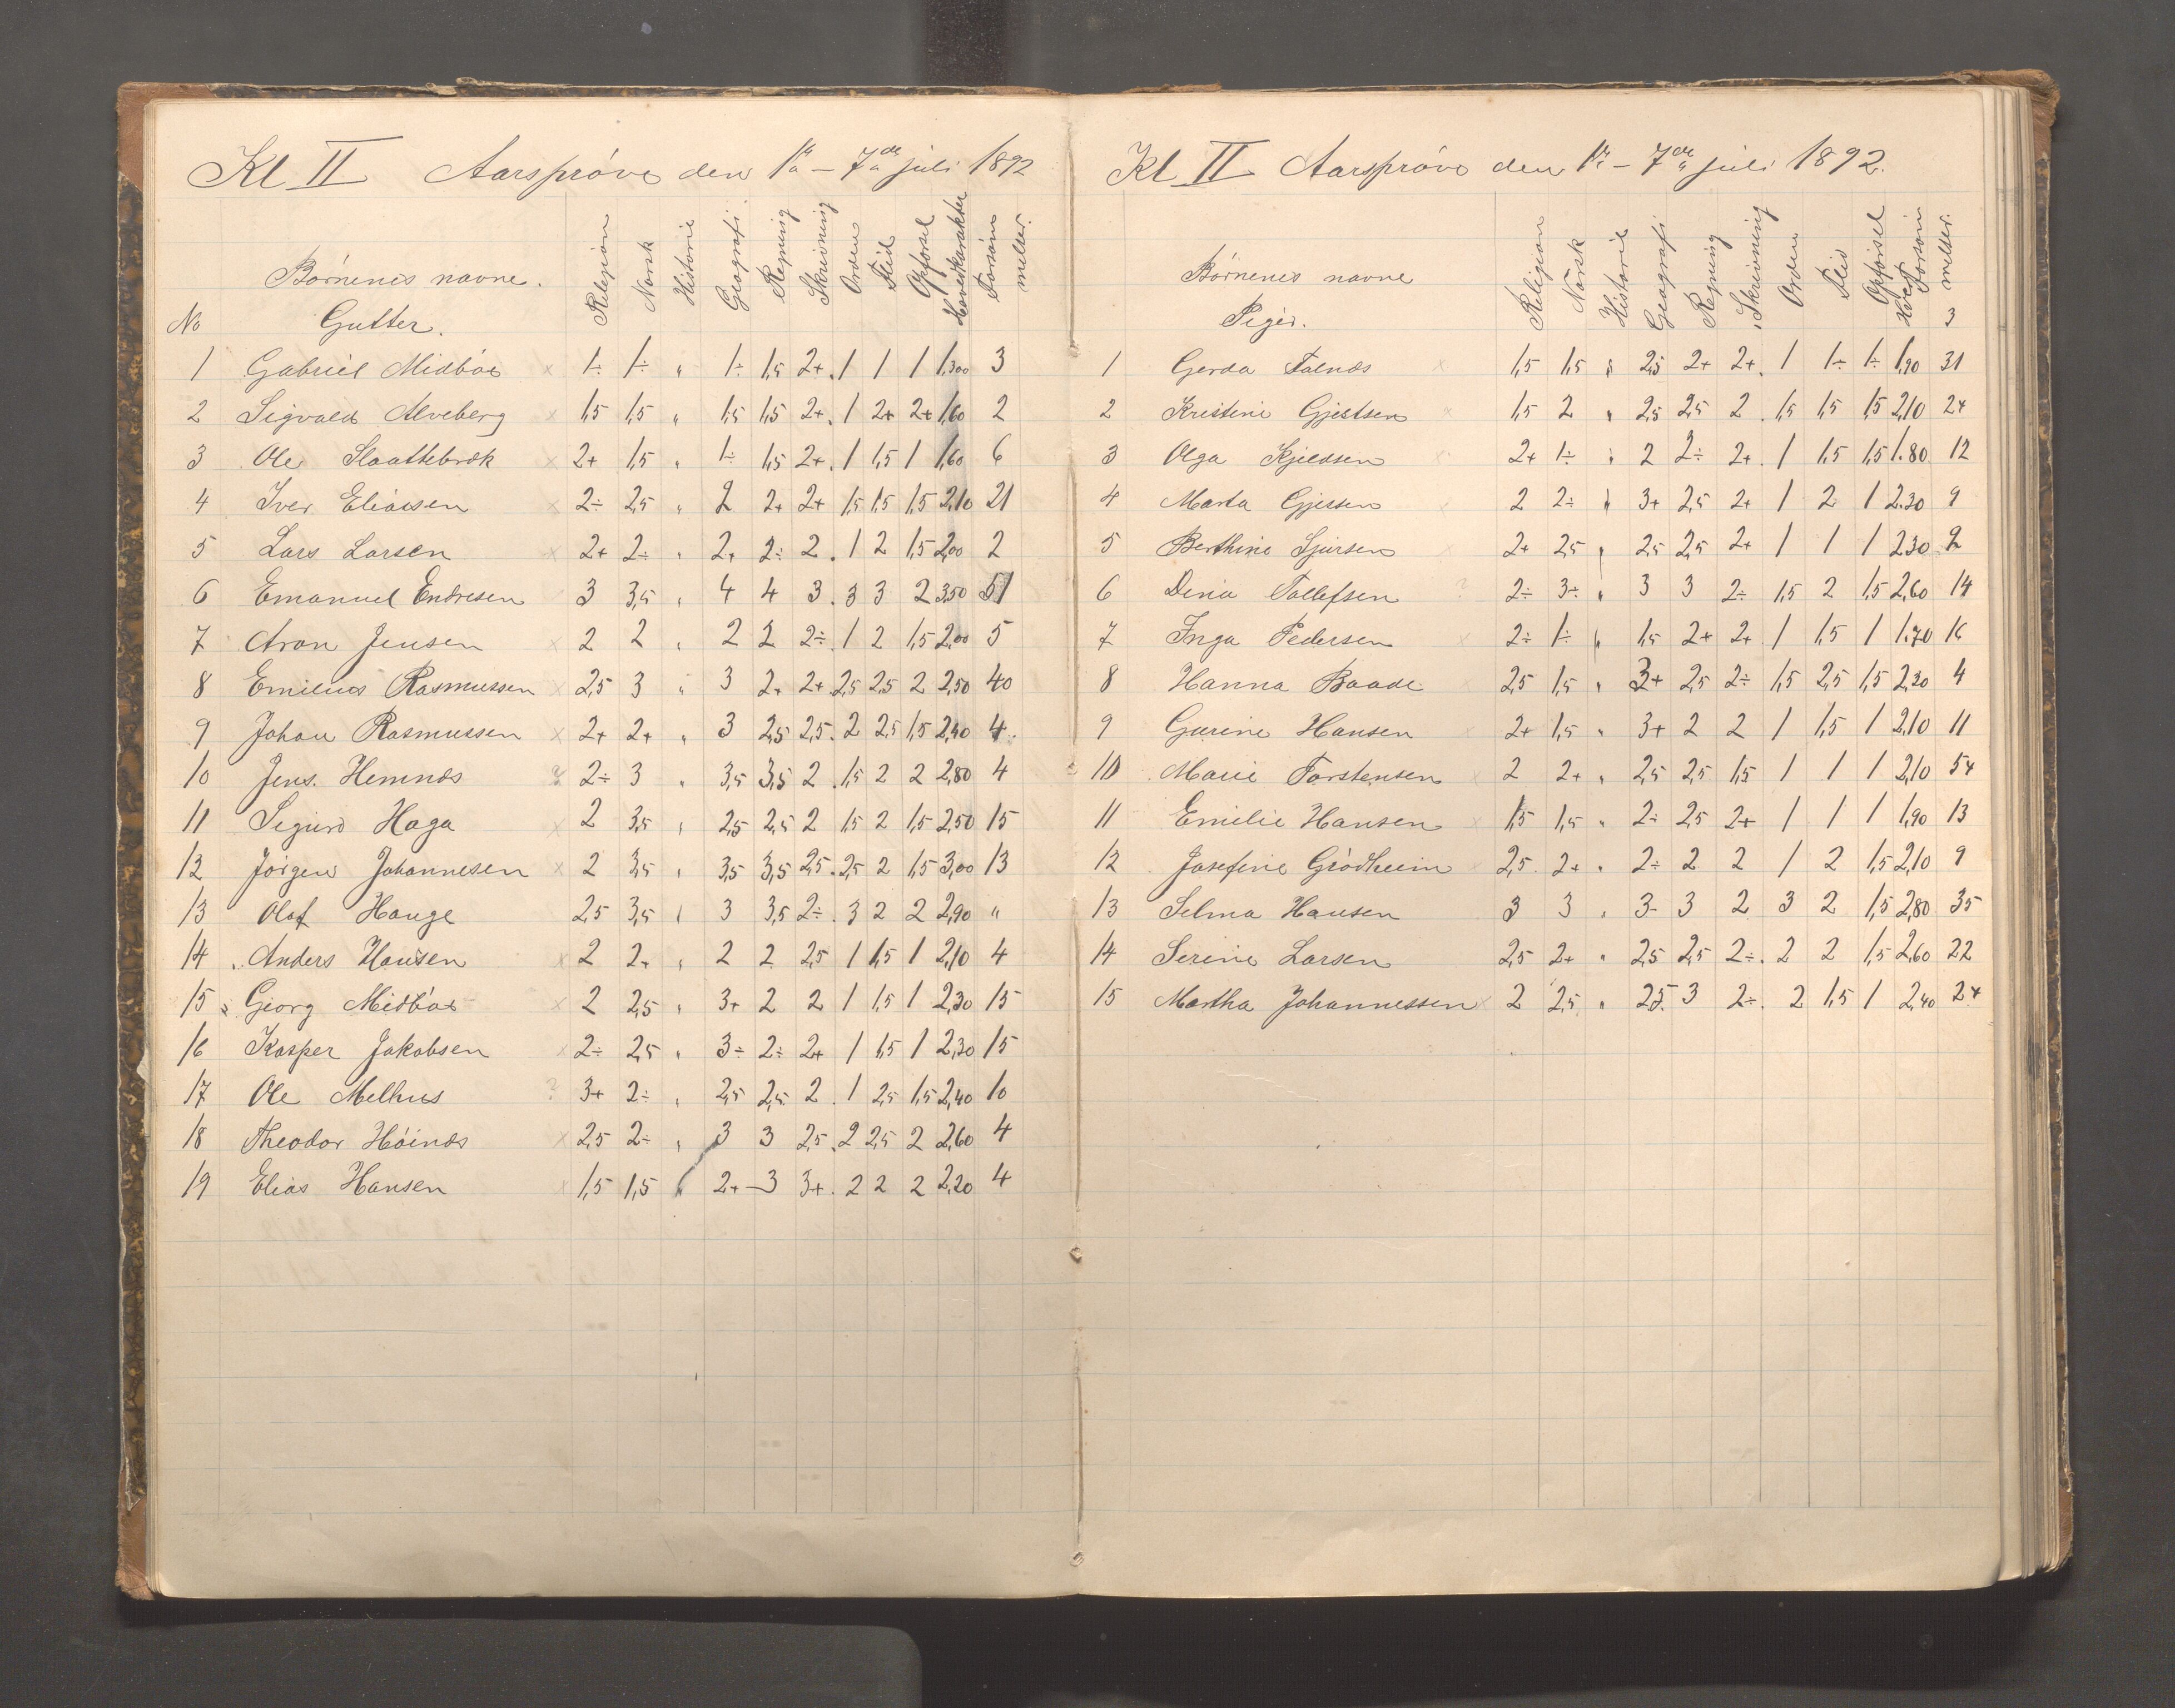 Kl II Aarsprøve den 1ste – 7de juli 1892
Børnenes navne. Religion Norsk Historie Geografi Regning Skrivning Orden Flid Opførsel Hovedkarakter Forsømmelser.
No Gutter.
1 Gabriel Midbøe x 1÷ 1÷ " 1÷ 1,5 2+ 1 1 1 1,300 3
2 Sigvald Alveberg x 1,5 1,5 " 1,5 1,5 2+ 1 2+ 2+ 1,60 2
3 Ole Slaattebræk x 2+ 1,5 " 1÷ 1,5 2+ 1 1,5 1 1,60 6
4 Iver Eliassen x 2÷ 2,5 " 2 2+ 2+ 1,5 1,5 1,5 2,10 21
5 Lars Larsen x 2+ 2÷ " 2+ 2÷ 2 1 2 1,5 2,00 2
6 Emanuel Endresen 3 3,5 " 4 4 3 3 3 2 3,50 51
7 Aron Jensen x 2 2 " 2 2 2÷ 1 2 1,5 2,00 5
8 Emilius Rasmussen x 2,5 3 " 3 2+ 2+ 2,5 2,5 2 2,50 40
9 Johan Rasmussen x 2+ 2+ " 3 2,5 2,5 2 2,5 1,5 2,40 4
10 Jens Hemnæs ? 2÷ 3 " 3,5 3,5 2 1,5 2 2 2,80 4
11 Sigurd Haga x 2 3,5 " 2,5 2,5 2 1,5 2 1,5 2,50 15
12 Jørgen Johannesen x 2 3,5 " 3,5 3,5 2,5 2,5 2 1,5 3,00 13
13 Olaf Hauge 2,5 3,5 " 3 3,5 2÷ 3 2 2 2,90 "
14 Anders Hansen x 2 2+ " 2 2 2,5 1 1,5 1 2,10 4
15 Georg Midbøe x 2 2,5 " 3+ 2 2 1 1,5 1 2,30 15
16 Kasper Jakobsen x 2÷ 2,5 " 3÷ 2÷ 2+ 1 1,5 1 2,30 15
17 Ole Melhus ? 3+ 2÷ " 2,5 2,5 2 1 2,5 1,5 2,40 10
18 Theodor Høinæs x 2,5 2÷ " 3 3 2,5 2 2,5 2 2,60 4
19 Elias Hansen x 1,5 1,5 " 2+ 3 3+ 2 2 2 2,20 4
Kl II Aarsprøve den 1ste – 7de juli 1892.
Børnenes navne Religion Norsk Historie Geografi Regning Skrivning Orden Flid Opførsel Forsømmelser.
Piger. 3
1 Gerda Falnæs x 1,5 1,5 " 2,5 2+ 2+ 1 1÷ 1÷ 1,90 31
2 Kristine Gjertsen x 1,5 2 " 2,5 2,5 2 1,5 1,5 1,5 2,10 24
3 Olga Kjeldsen 2+ 1÷ " 2 2÷ 2+ 1 1,5 1,5 1.80 12
4 Marta Gjersen 2 2÷ " 3+ 2,5 2+ 1 2 1 2.30 9
5 Berthine Sjursen 2+ 2,5 " 2,5 2,5 2+ 1 1 1 2.30 2
6 Dina Tollefsen ? 2÷ 3÷ " 3 3 2÷ 1,5 2 1,5 2,60 14
7 Inga Pedersen x 2÷ 1÷ " 1,5 2+ 2+ 1 1,5 1 1.70 16
8 Hanna Baade 2,5 1,5 " 3+ 2,5 2÷ 1,5 2,5 1,5 2,30 4
9 Gurine Hansen x 2+ 1,5 " 3+ 2 2 1 1,5 1 2,10 11
10 Marie Torstensen x 2 2+ " 2,5 2,5 1,5 1 1 1 2,10 54
11 Emilie Hansen x 1,5 1,5 " 2÷ 2,5 2+ 1 1 1 1,90 13
12 Josefine Grødheim x 2,5 2+ " 2÷ 2 2 1 2 1,5 2,10 9
13 Selma Hansen 3 3 " 3- 3 2 3 2 1,5 2,80 35
14 Serine Larsen 2,5 2+ " 2,5 2,5 2÷ 2 2 1,5 2,60 22
15 Martha Johannessen x 2 2,5 " 2,5 3 2÷ 2 1,5 1 2,40 24